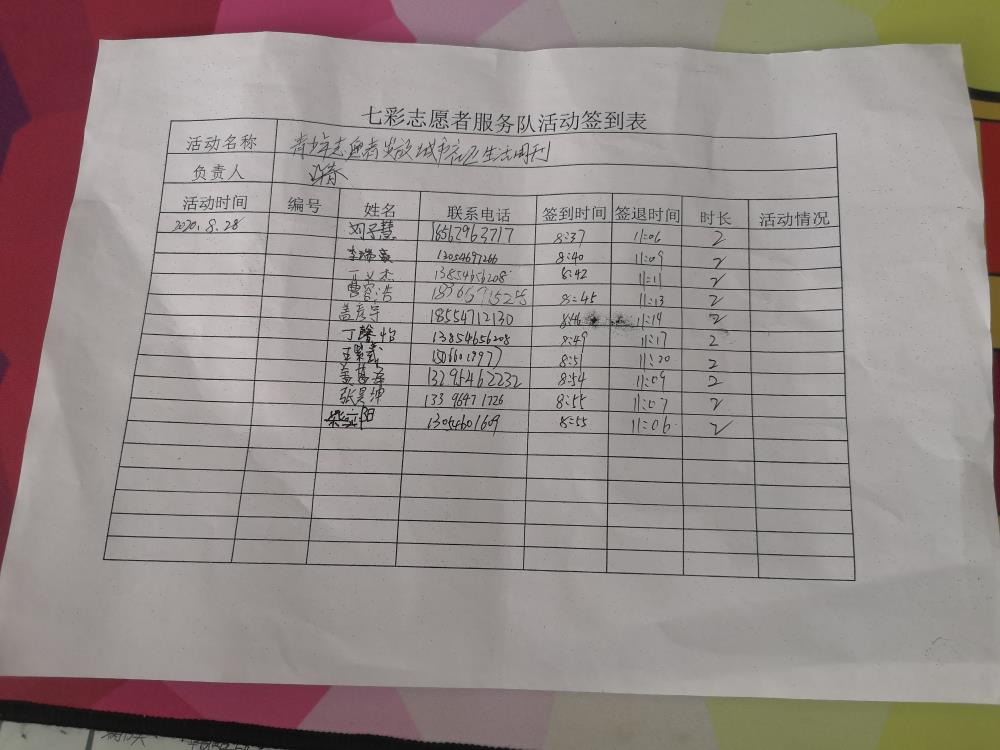 七彩志愿者服务队活动签到表
活动名称 青少年志愿者 城市社区生态周刊
负责人
活动时间 编号 姓名 联系电话 签到时间 签退时间 时长 活动情况
2020.8.28 刘子慧 18562963717 8:37 11:06 2
李瑞 13054697266 8:40 11:09 2
杰 13854656208 8:42 11:11 2
曹 浩 8:45 11:13 2
盖彦宇 18554712130 8:46 11:14 2
丁馨怡 13854656208 8:49 11:17 2
王 8:51 11:20 2
盖 13295462232 8:54 11:09 2
张昊坤 13396471726 8:55 11:07 2
阳 13054601609 8:55 11:06 2